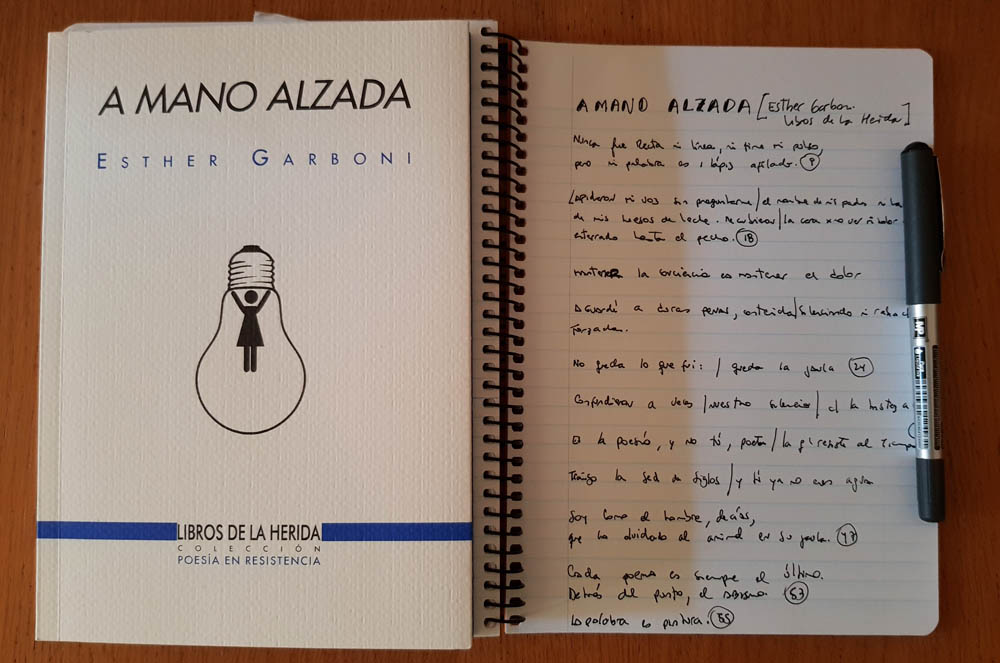 A MANO ALZADA
ESTHER GARBONI
LIBROS DE LA HERIDA
COLECCIÓN
POESÍA EN RESISTENCIA
A MANO ALZADA [Esther Garboni.
Libros de la Herida]
Nunca fue recta mi línea, ni firme mi pulso,
pero mi palabra es 1 lápiz afilado. 9
mi voz sin preguntarme / el nombre de mis padres ni la
de mis huesos de leche. / la cara x no ver mi dolor
enterrado hasta el pecho. 18
mantener la conciencia es mantener el dolor
a duras penas, contenida / silenciando mi
forzadas.
No queda lo que fui: / queda la jaula 24
a veces / nuestro silencio / c/ la
Es la poesía, y no tú, poeta / la q' resiste al tiempo
Tengo la sed de siglos / y tú ya no eres agua
Soy como el hombre, decías,
que ha olvidado al animal en su jaula. 47
Cada poema es siempre el último.
Detrás del punto, el 53
La palabra es 55